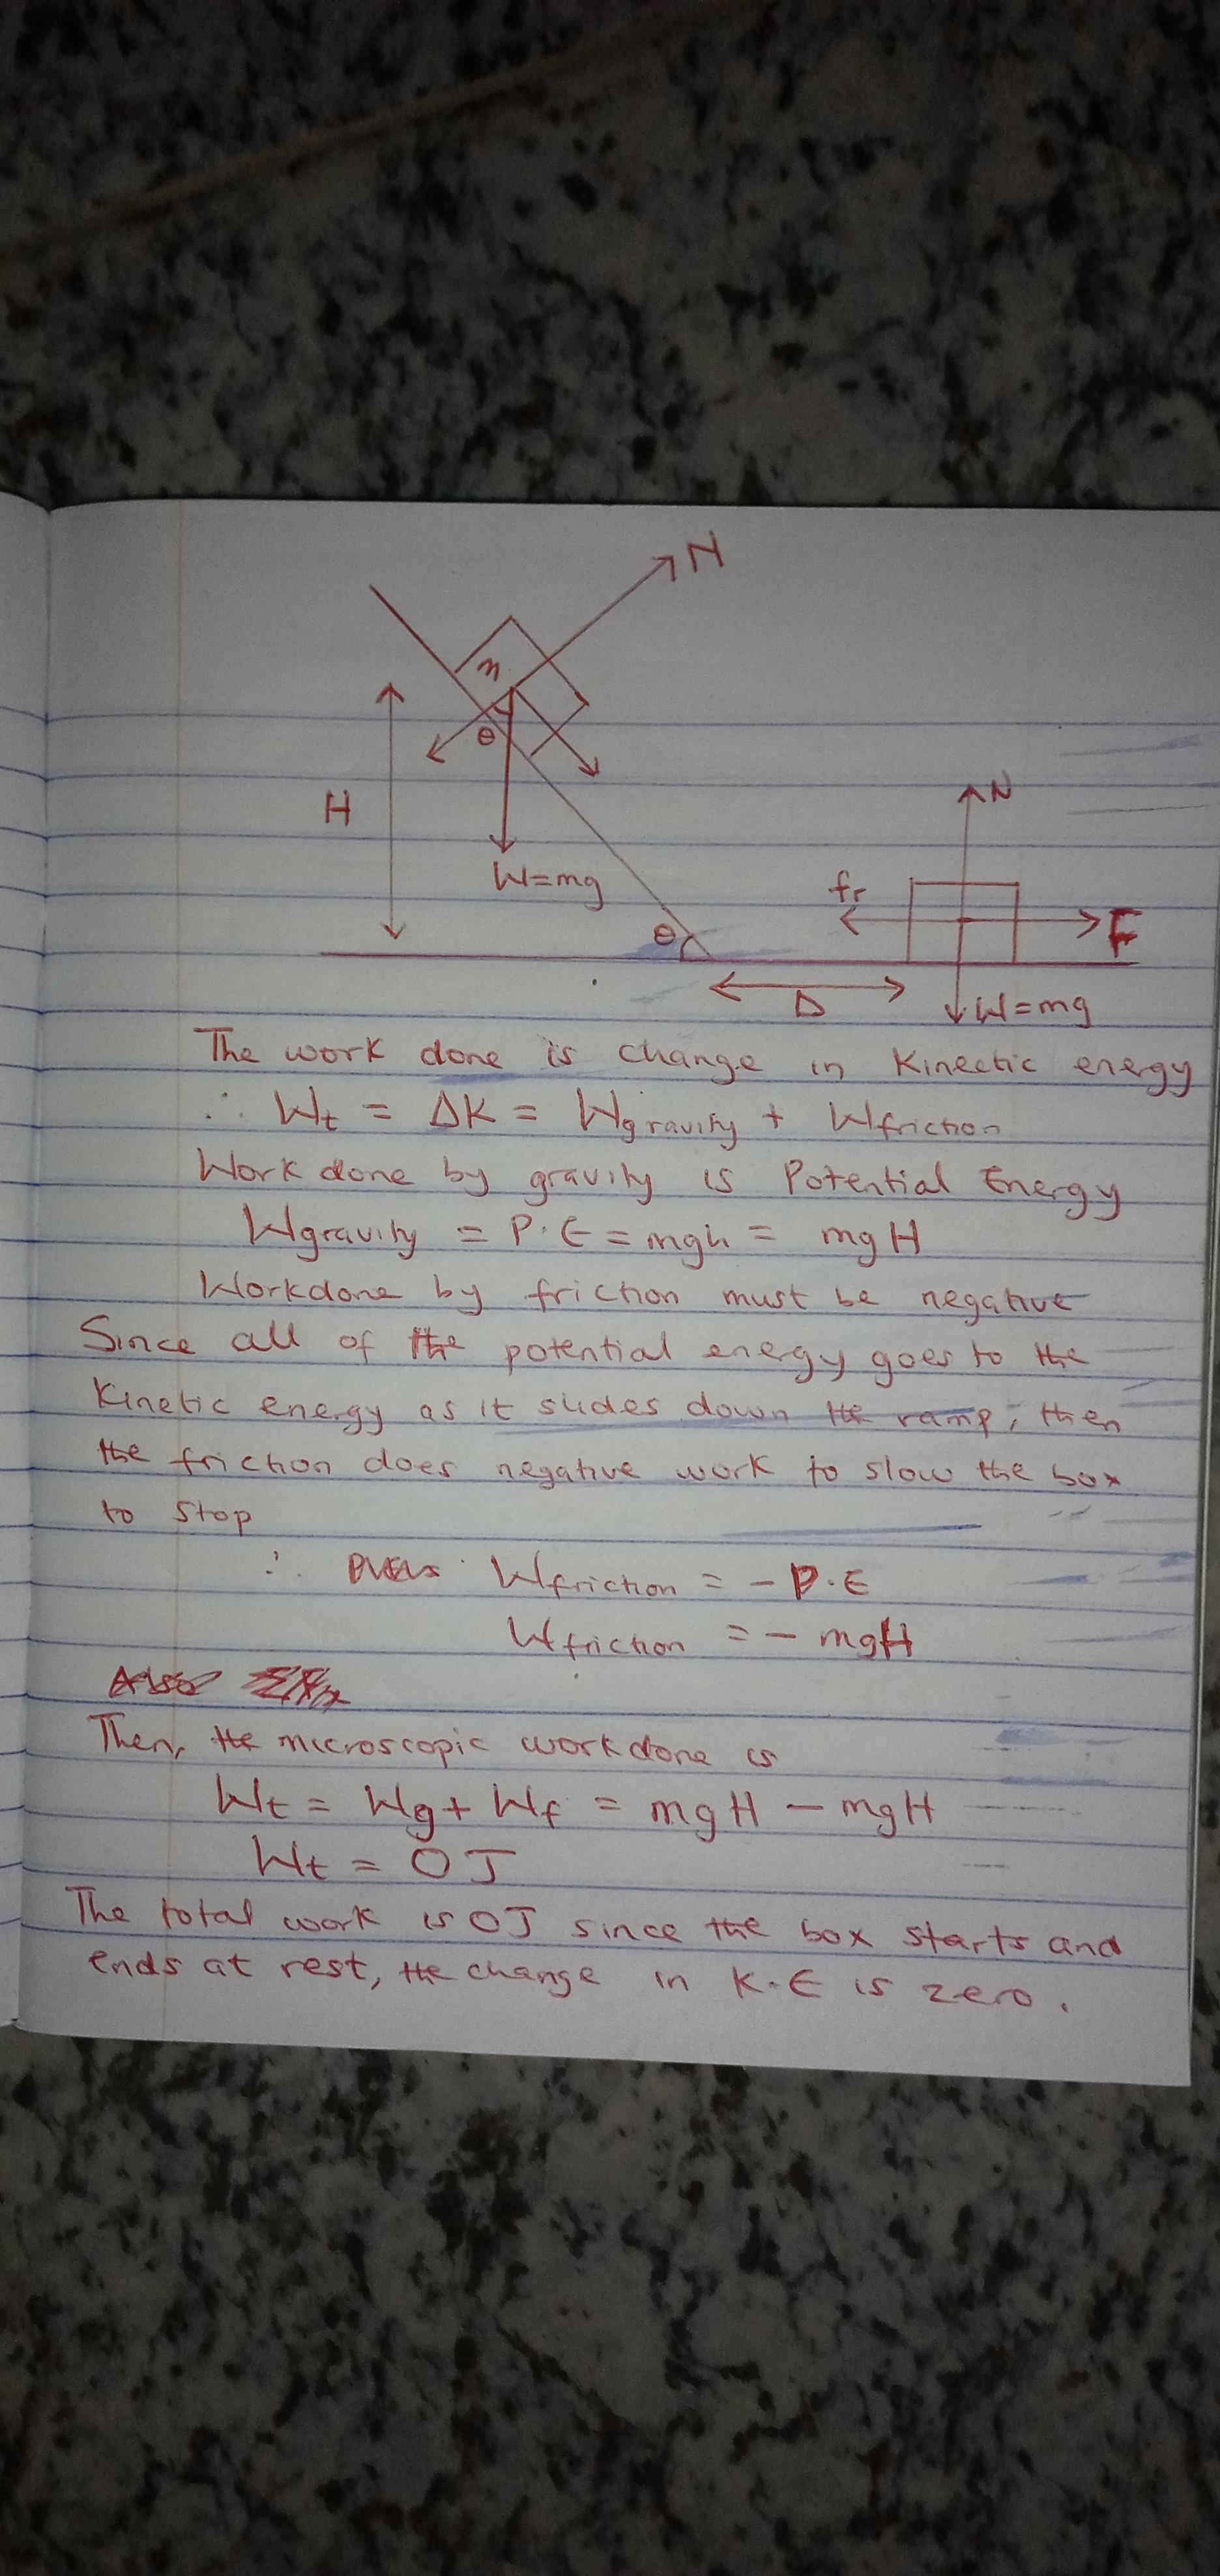 N
m
θ
H
W=mg
N
fr
F
θ
D
W=mg
The work done is change in Kinectic energy
∴ Wt = ΔK = Wgravity + Wfriction
Work done by gravity is Potential Energy
Wgravity = P.E = mgh = mgH
Workdone by friction must be negative
Since all of the potential energy goes to the
Kinetic energy as it slides down the ramp, then
the friction does negative work to slow the box
to stop
∴ Wfriction = - P.E
Wfriction = - mgH
Then, the microscopic workdone is
Wt = Wg + Wf = mgH - mgH
Wt = 0 J
The total work is 0J since the box starts and
ends at rest, the change in K.E is zero.